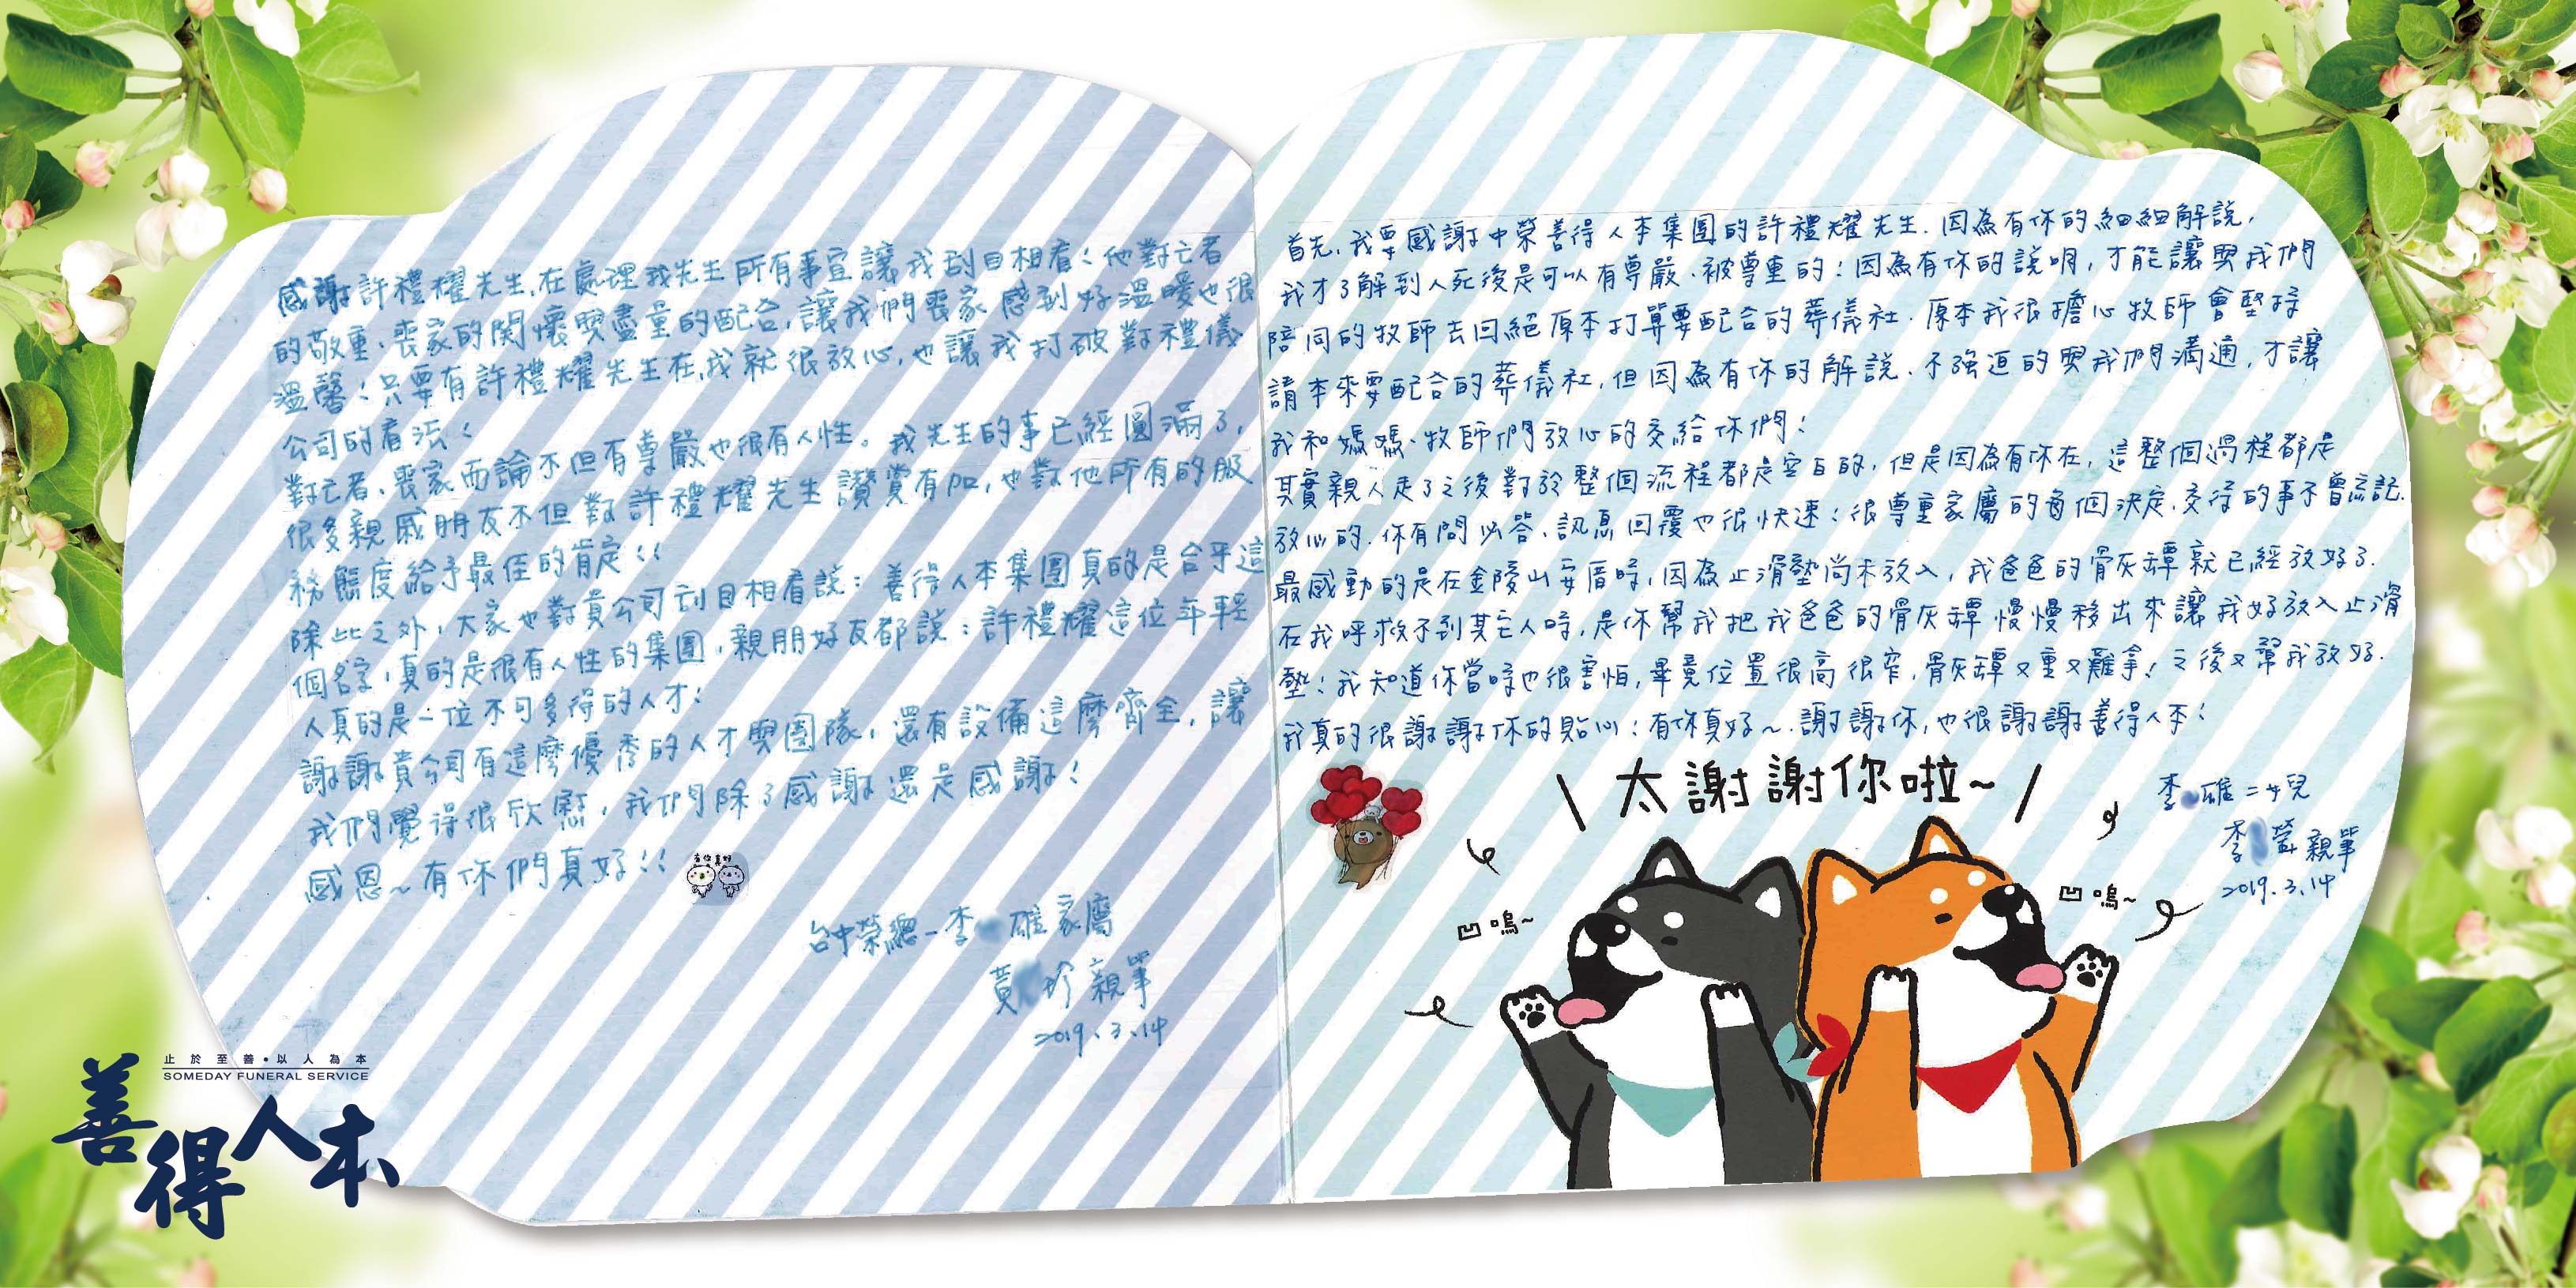 感謝許禮耀先生,在處理我先生所有事宜讓我刮目相看!他對亡者
的敬重、喪家的関懷與盡量的配合,讓我們喪家感到好溫暖也很
溫馨!只要有許禮耀先生在,我就很放心,也讓我打破對禮儀
公司的看法!
對亡者、喪家而論不但有尊嚴也很有人性。我先生的事已經圓滿了,
很多親戚朋友不但對許禮耀先生讚賞有加,也對他所有的服
務態度給予最佳的肯定!!
除此之外,大家也對貴公司刮目相看說:善得人本集團真的是合乎這
個名字,真的是很有人性的集團,親朋好友都說:許禮耀這位年輕
人真的是一位不可多得的人才!
謝謝貴公司有這麼優秀的人才與團隊,還有設備這麼齊全,讓
我們覺得很欣慰,我們除了感謝還是感謝!
感恩~有你們真好!!
有你真好
台中榮總-李 雄家屬
黃 珍 親筆
2019.3.14
止於至善•以人為本
SOMEDAY FUNERAL SERVICE
善得人本
首先,我要感謝中榮善得人本集團的許禮耀先生.因為有你的細細解說,
我才了解到人死後是可以有尊嚴、被尊重的!因為有你的說明,才能讓與我們
陪同的牧師去回絕原本打算要配合的葬儀社.原本我很擔心牧師會堅持
請本來要配合的葬儀社,但因為有你的解說、不強迫的與我們溝通,才讓
我和媽媽、牧師們放心的交給你們!
其實親人走了之後對於整個流程都是空白的,但是因為有你在,這整個過程都是
放心的.你有問必答、訊息回覆也很快速!很尊重家屬的每個決定、交待的事不曾忘記.
最感動的是在金陵山安厝時,因為止滑墊尚未放入,我爸爸的骨灰罈就已經放好了.
在我呼救不到其它人時,是你幫我把我爸爸的骨灰罈慢慢移出來讓我好放入止滑
墊!我知道你當時也很害怕,畢竟位置很高很窄,骨灰罈又重又難拿!之後又幫我放好.
我真的很謝謝你的貼心!有你真好~.謝謝你,也很謝謝善得人本!
\ 太謝謝你啦~ /
李 雄二女兒
李 螢親筆
2019.3.14
凹嗚~
凹嗚~